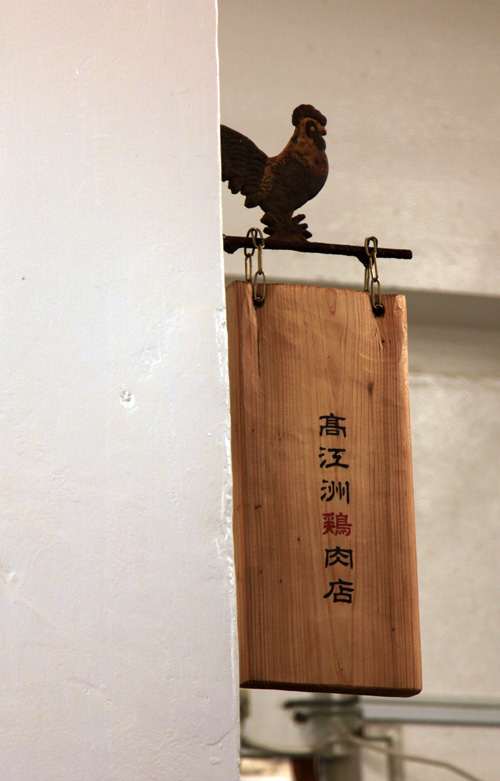 髙江洲鶏肉店